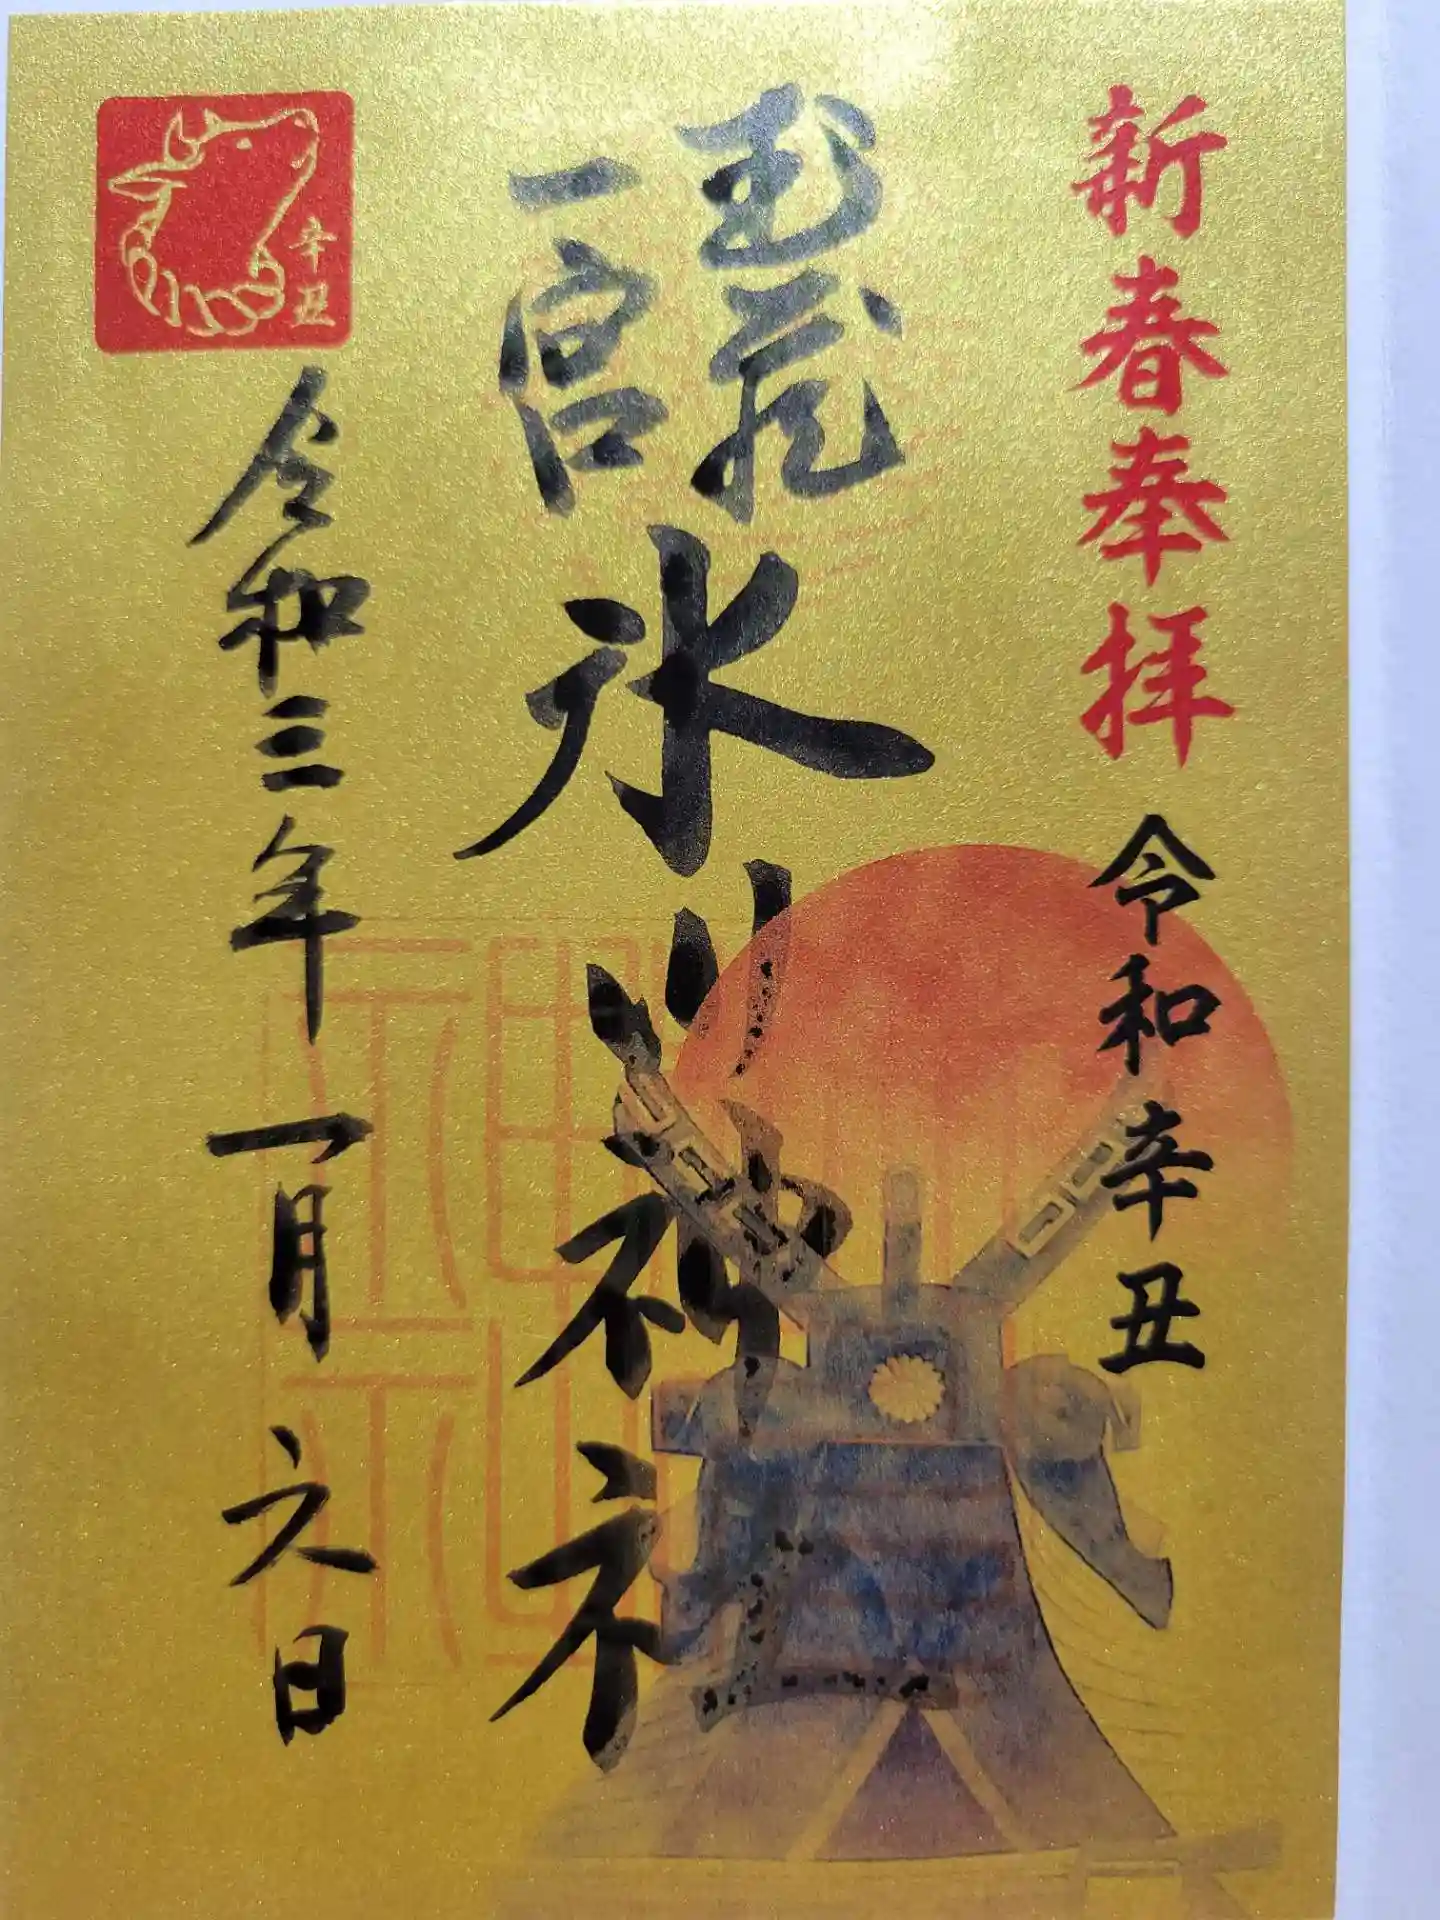 新春奉拝
令和辛丑
武蔵
一宮
氷川神社
令和三年一月六日
辛丑